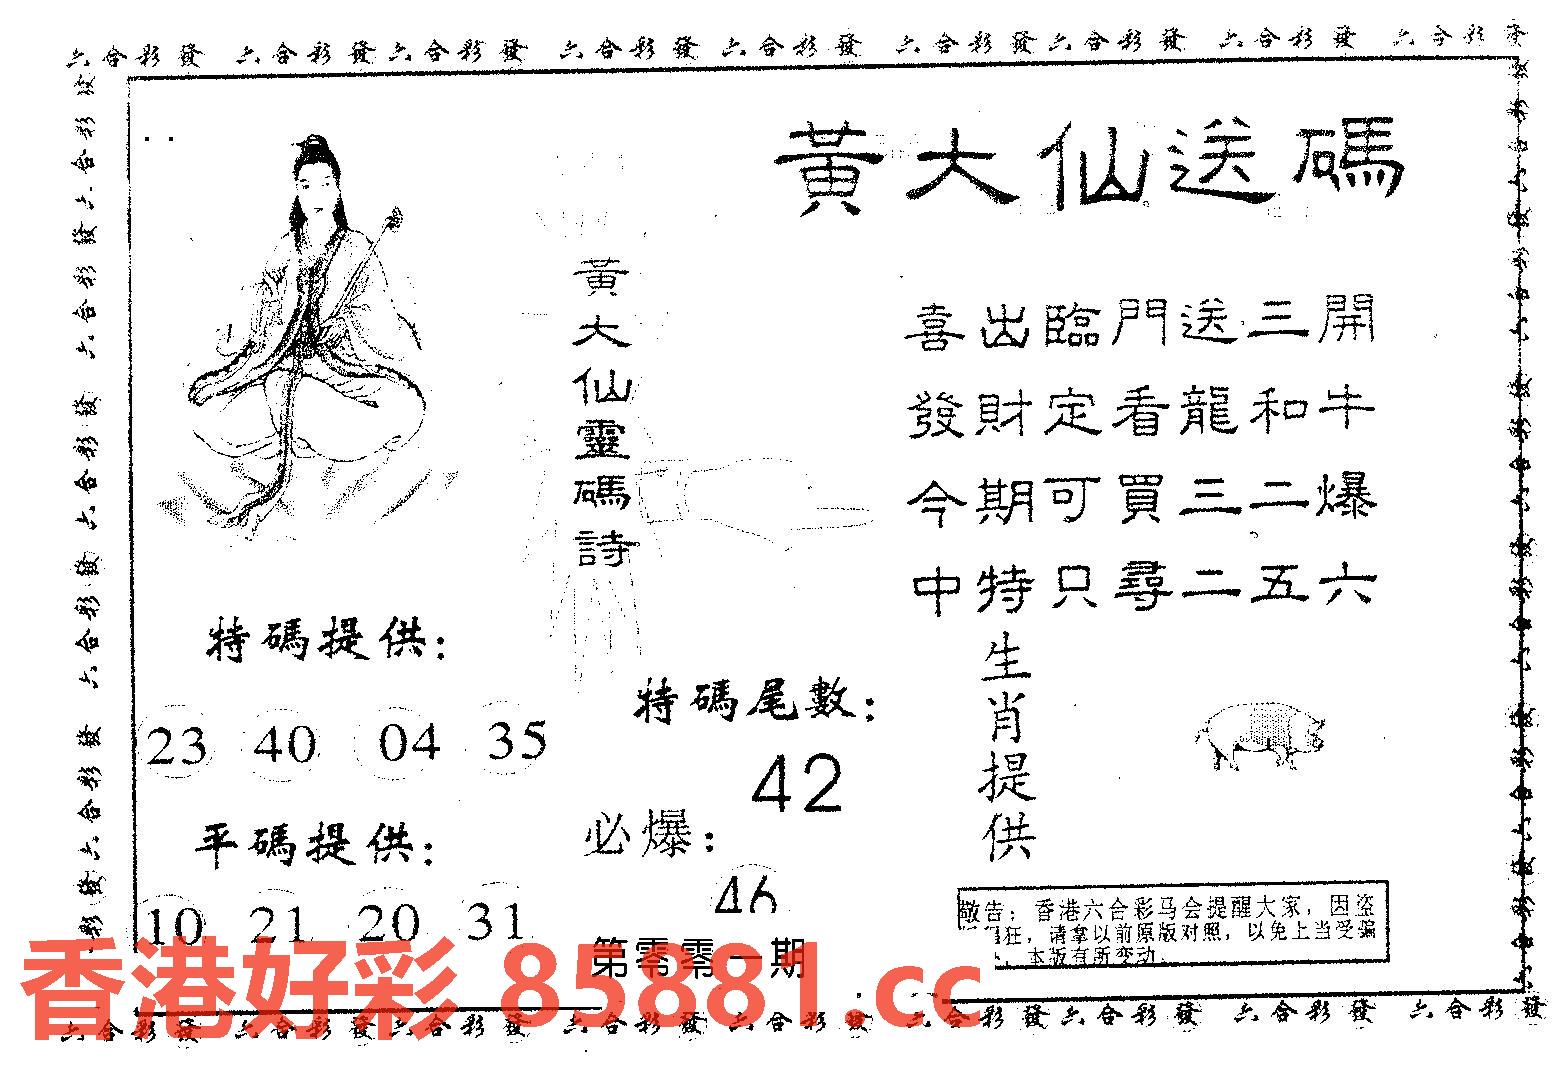 六合彩發 六合彩發六合彩發 六合彩發 六合彩發 六合彩發六合彩發 六合彩發 六合彩發
黃大仙送碼
黃大仙靈碼詩
喜出臨門送三開
發財定看龍和牛
今期可買三二爆
中特只尋二五六
特碼提供：
23 40 04 35
平碼提供：
10 21 20 31
特碼尾數：
42
必爆：
46
第零零一期
生肖提供
敬告：香港六合彩马会提醒大家，因盗
狂，请拿以前原版对照，以免上当受骗
，本版有所变动.
香港好彩 85881.cc
六合彩發 六合彩發六合彩發 六合彩發 六合彩發 六合彩發六合彩發 六合彩發 六合彩發